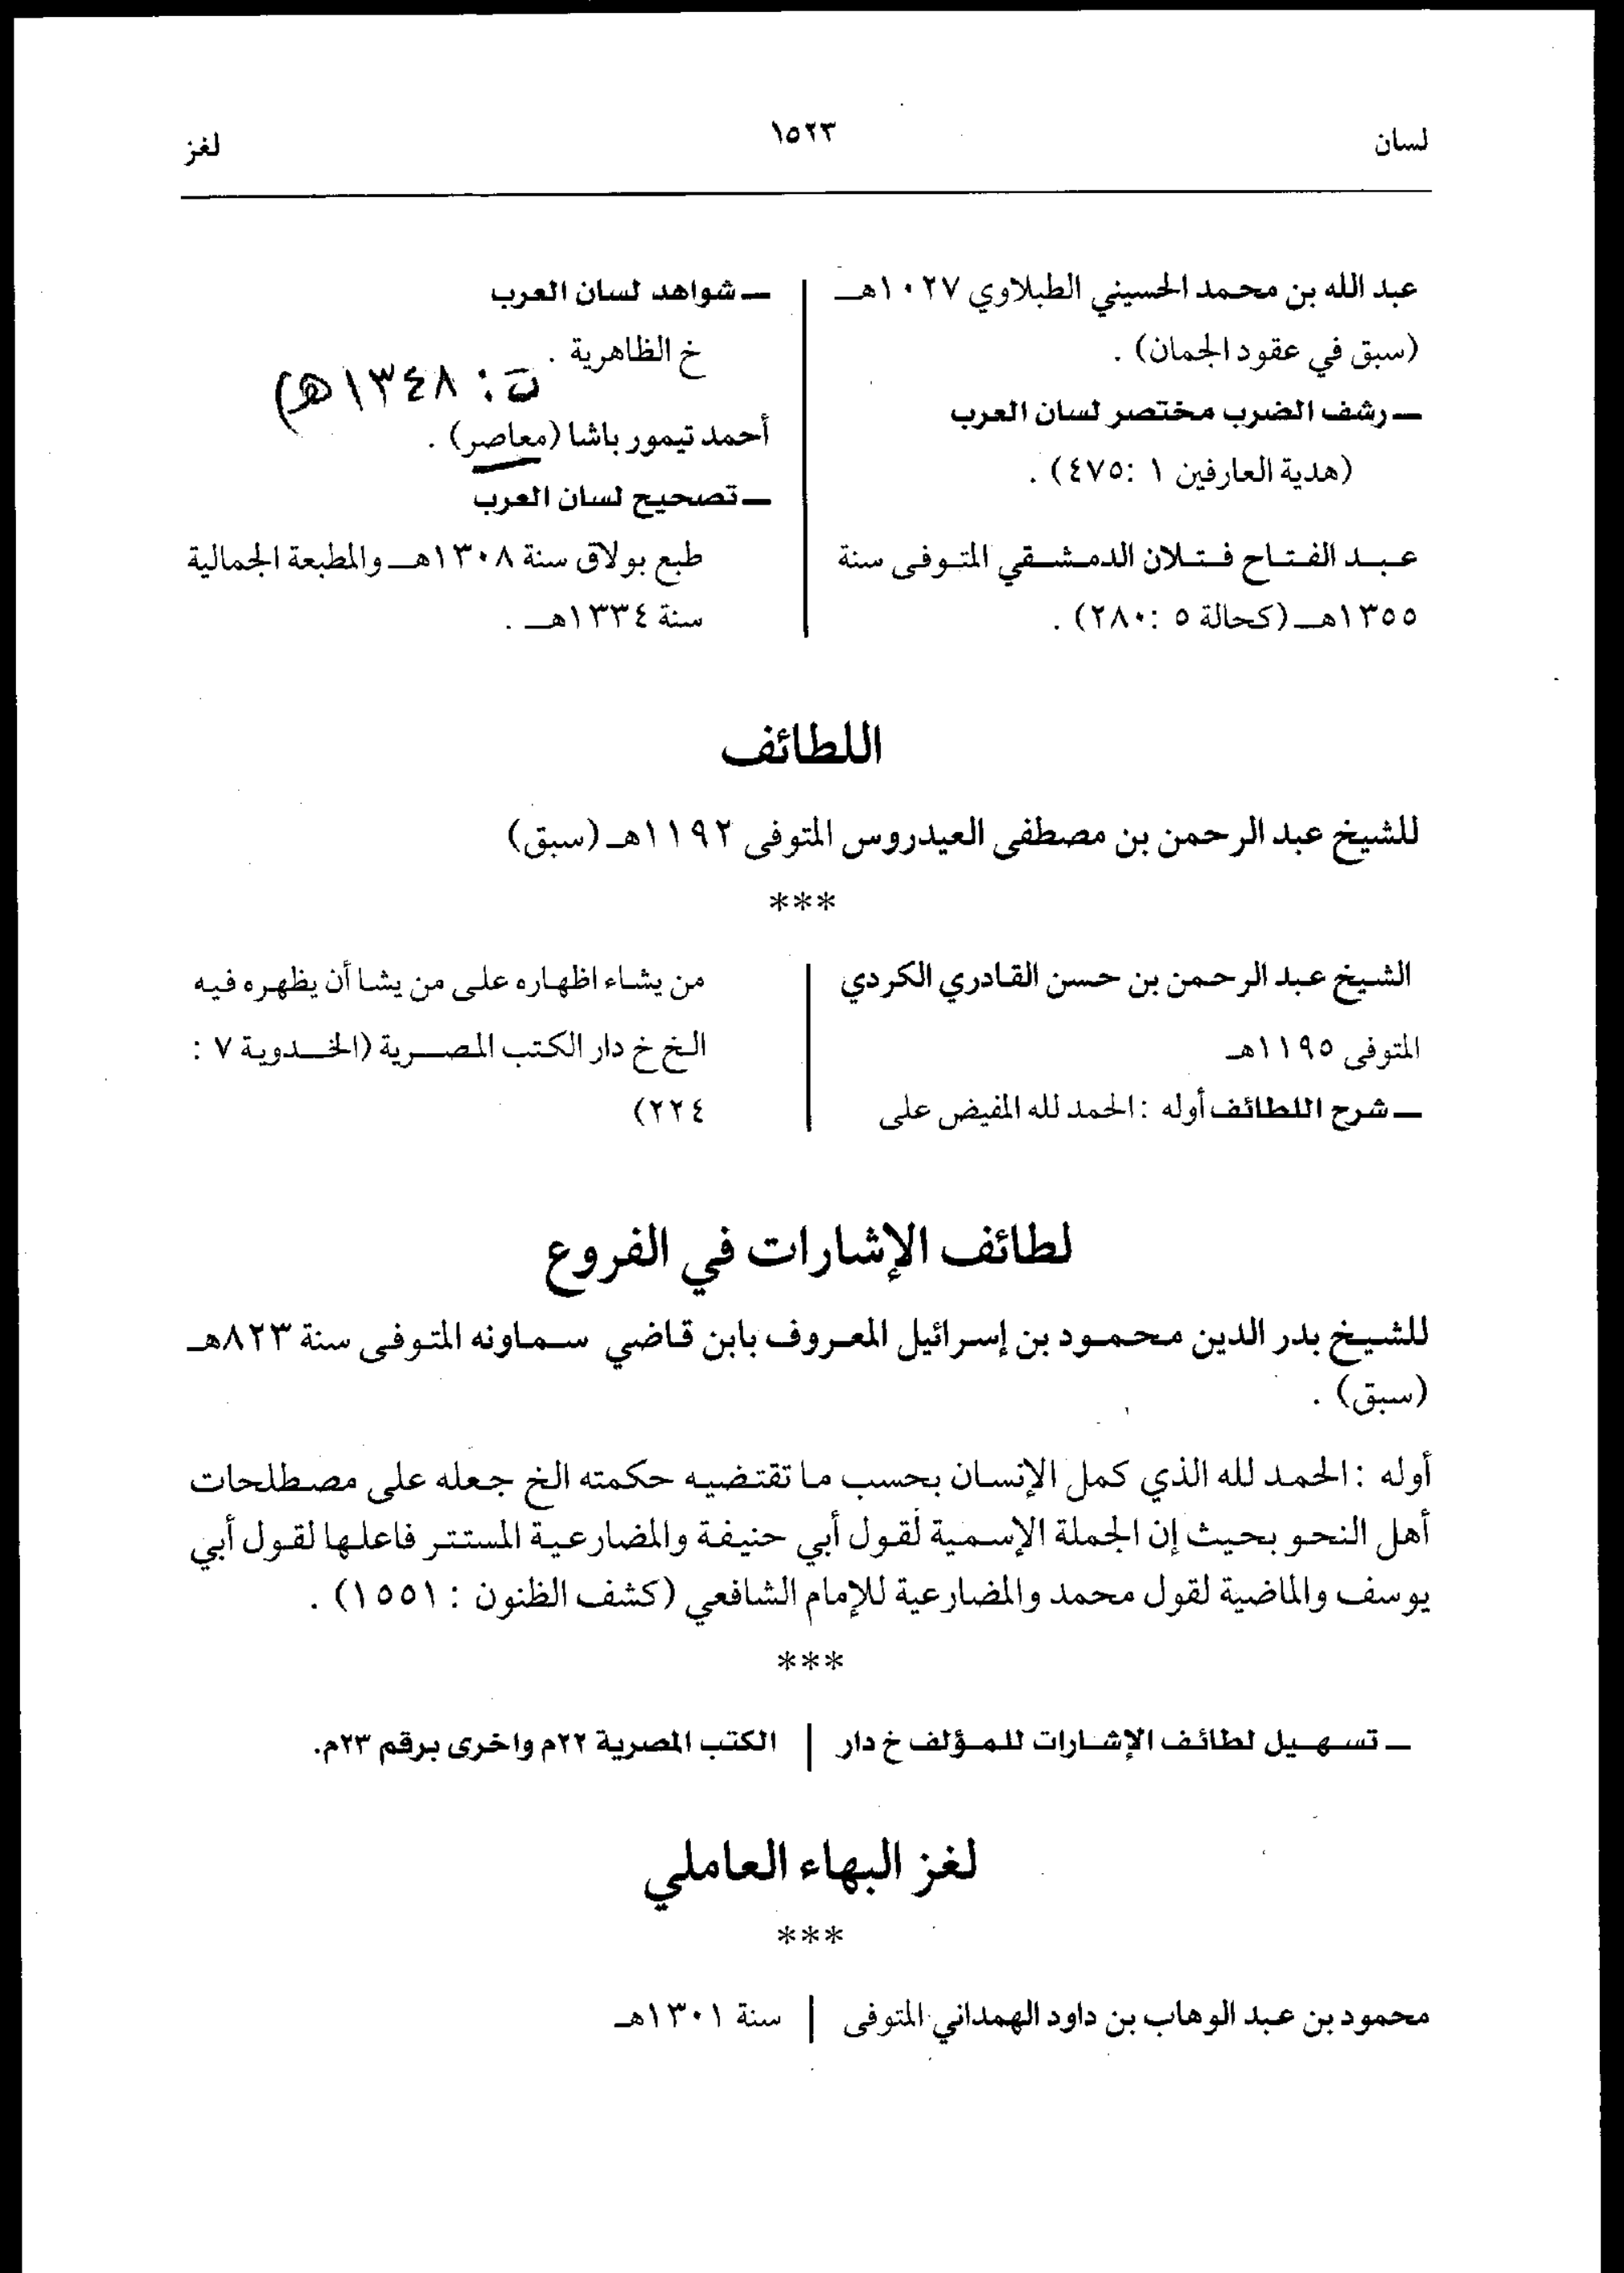 لسان
١٥٢٣
لغز
عبد الله بن محمد الحسيني الطبلاوي ١٠٢٧هـ
(سبق في عقود الجمان) .
ـ رشف الضرب مختصر لسان العرب
(هدية العارفين ١ :٤٧٥) .
عبد الفتاح فتلان الدمشقي المتوفى سنة
١٣٥٥هـ (كحالة ٥ :٢٨٠) .
ـ شواهد لسان العرب
خ الظاهرية .
ت : ١٣٤٨هـ)
أحمد تيمور باشا (معاصر) .
ـ تصحيح لسان العرب
طبع بولاق سنة ١٣٠٨هـ والمطبعة الجمالية
سنة ١٣٣٤هـ .
اللطائف
للشيخ عبد الرحمن بن مصطفى العيدروس المتوفى ١١٩٢هـ (سبق)
***
الشيخ عبد الرحمن بن حسن القادري الكردي
المتوفى ١١٩٥هـ
ـ شرح اللطائف أوله : الحمد لله المفيض على
من يشاء اظهاره على من يشا أن يظهره فيه
الخ خ دار الكتب المصرية (الخدوية ٧ :
٢٢٤)
لطائف الإشارات في الفروع
للشيخ بدر الدين محمود بن إسرائيل المعروف بابن قاضي سماونه المتوفى سنة ٨٢٣هـ
(سبق) .
أوله : الحمد لله الذي كمل الإنسان بحسب ما تقتضيه حكمته الخ جعله على مصطلحات
أهل النحو بحيث إن الجملة الإسمية لقول أبي حنيفة والمضارعية المستتر فاعلها لقول أبي
يوسف والماضية لقول محمد والمضارعية للإمام الشافعي (كشف الظنون : ١٥٥١) .
***
ـ تسهيل لطائف الإشارات للمؤلف خ دار
الكتب المصرية ٢٢م واخرى برقم ٢٣م.
لغز البهاء العاملي
***
محمود بن عبد الوهاب بن داود الهمداني المتوفى
سنة ١٣٠١هـ